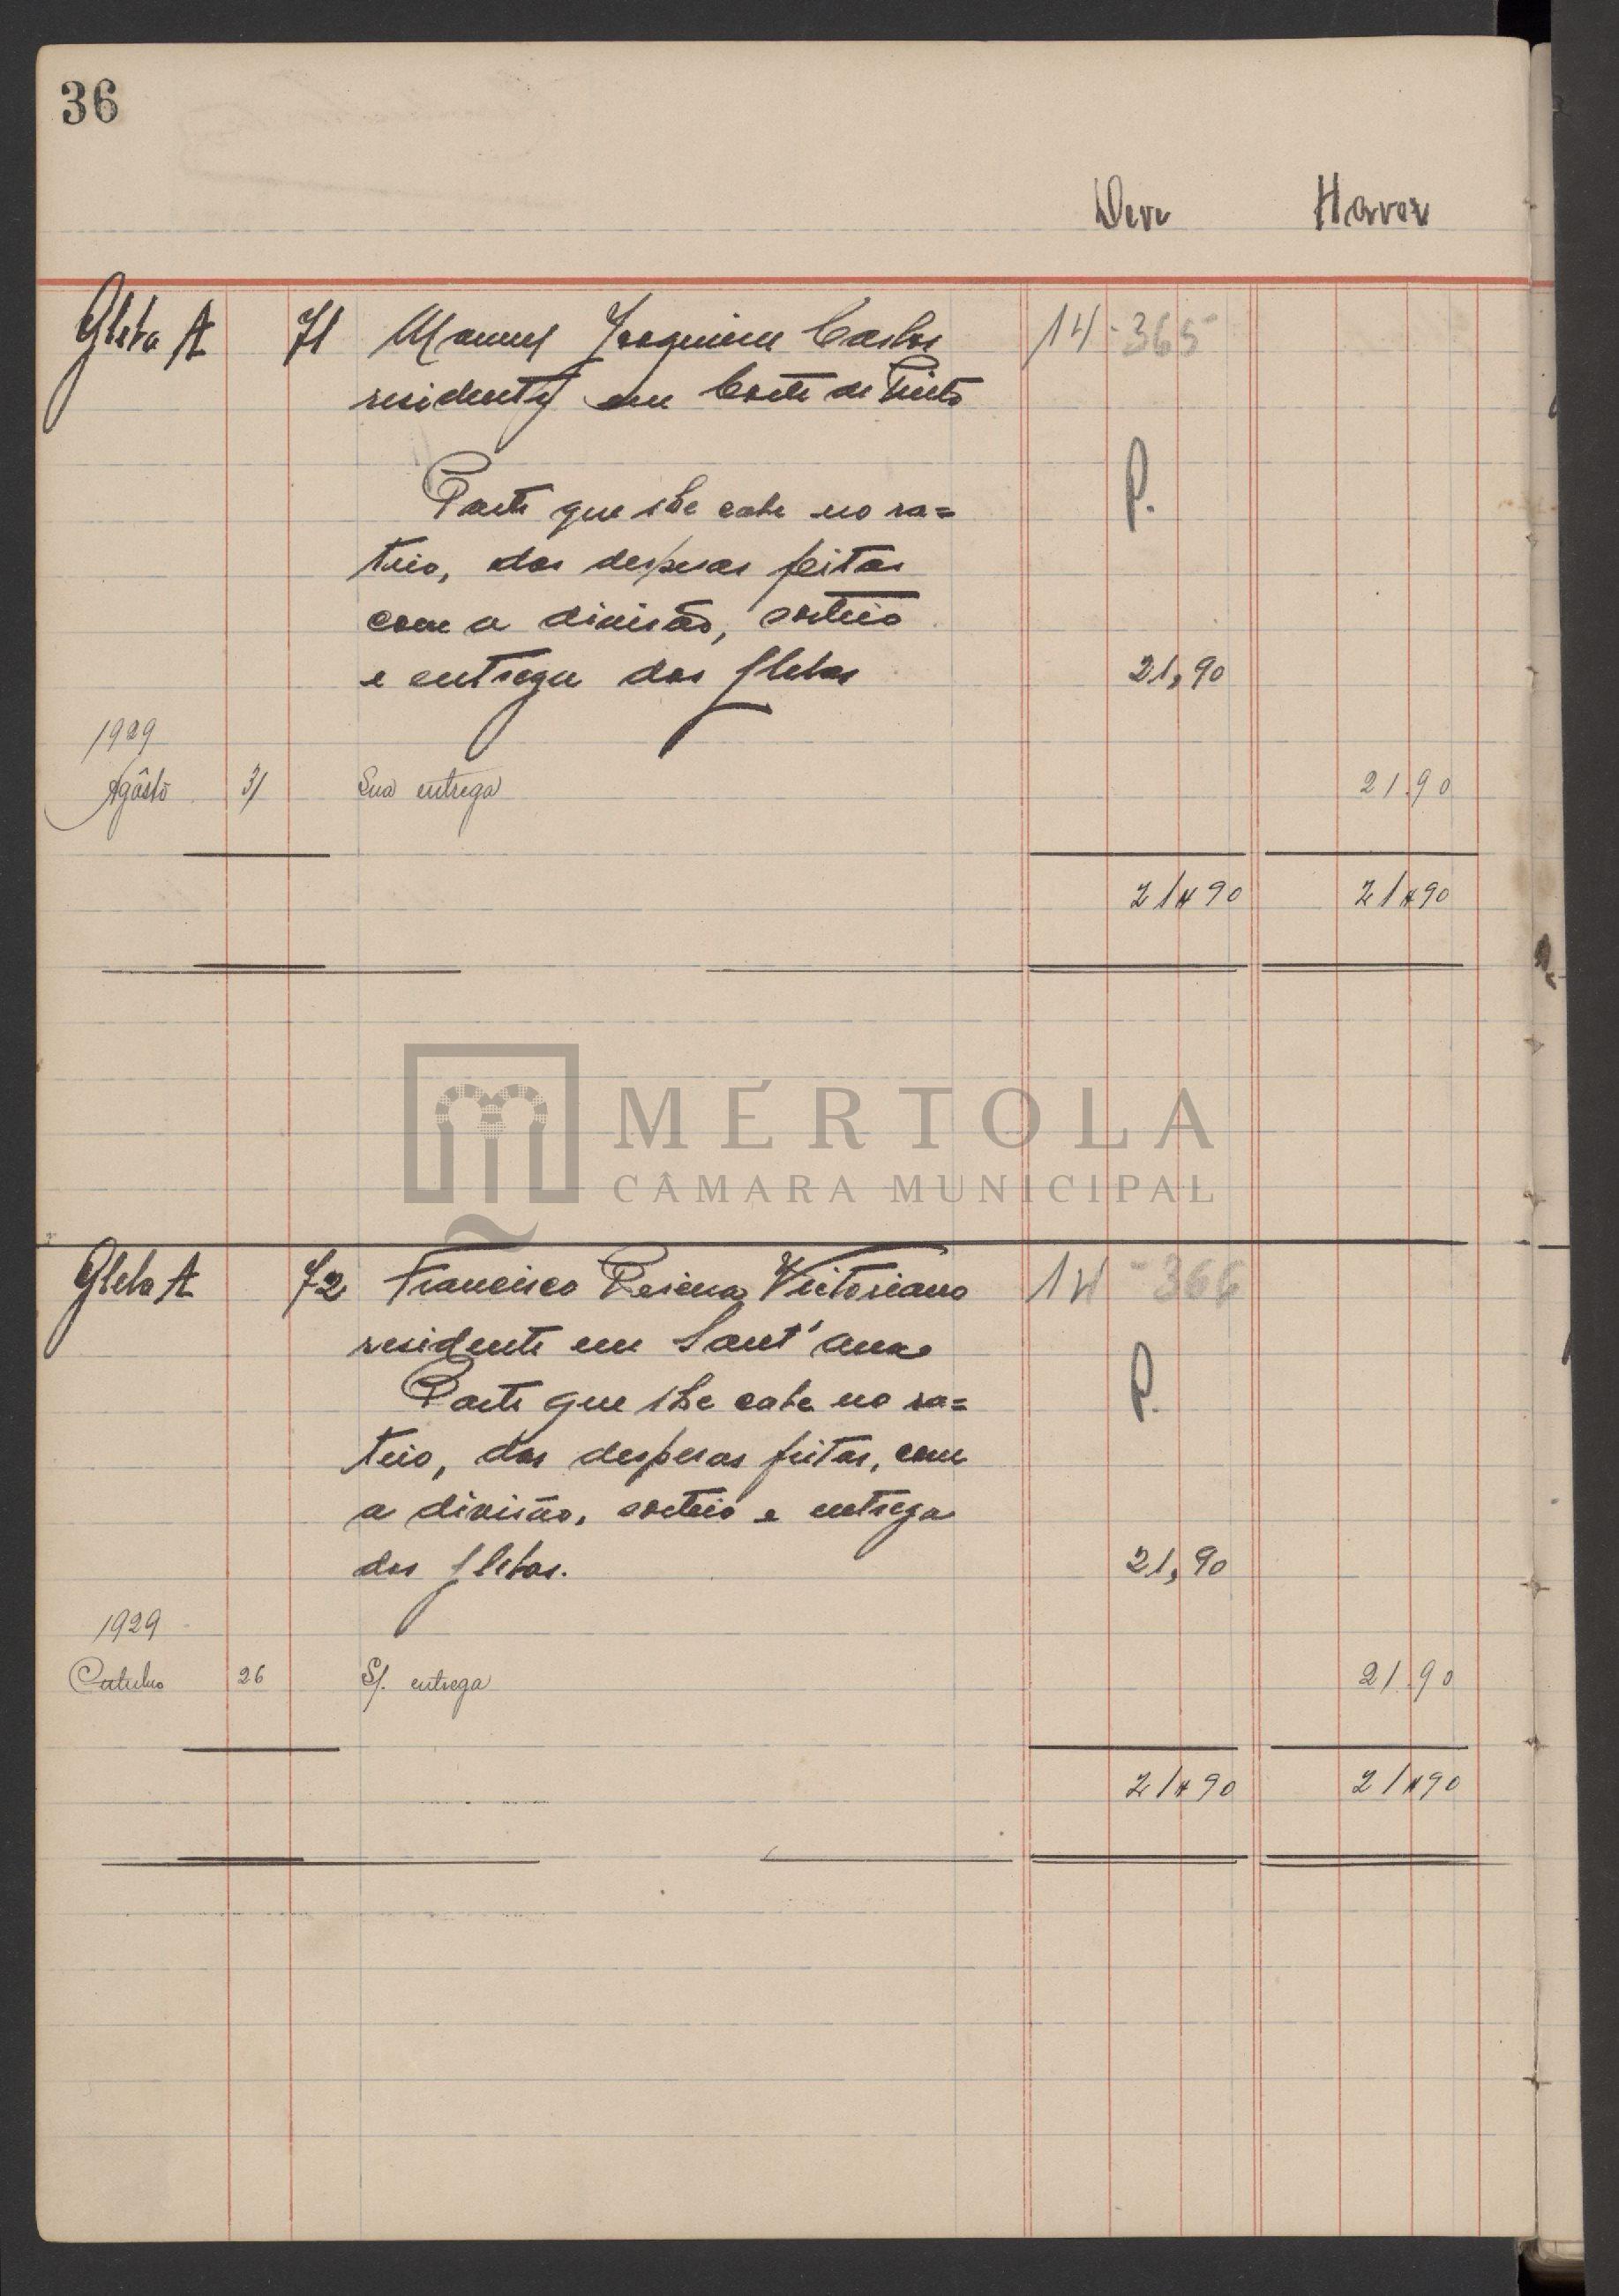 36
Deve Haver
Gleba A 71 Manuel Joaquim Carlos 14-365
residente em Corte de Pinto
P.
Parte que lhe cabe no ra=
teio, das despesas feitas
com a divisão, sorteio
e entrega das glebas 21,90
1929
Agôsto 31 Sua entrega 21.90
21$90 21$90
MÉRTOLA
CÂMARA MUNICIPAL
Gleba A 72 Francisco Victoriano 14-366
residente em Sant'ana
P.
Parte que lhe cabe no ra=
teio, das despesas feitas, com
a divisão, sorteio e entrega
das glebas. 21,90
1929
Outubro 26 S/. entrega 21.90
21$90 21$90